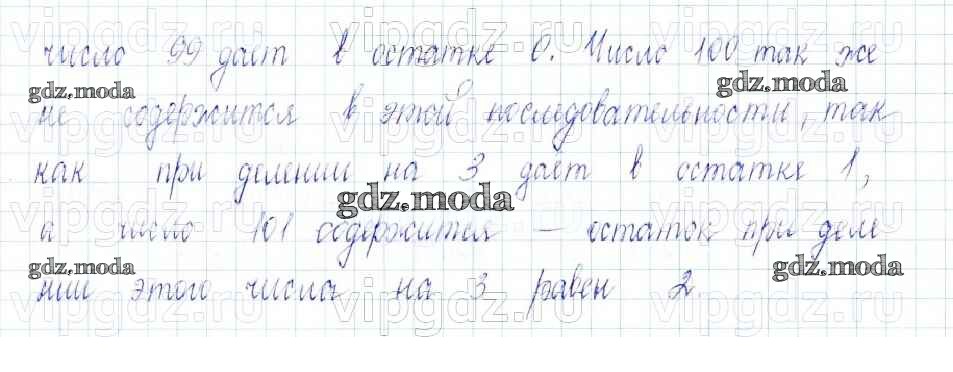 число 99 дает в остатке 0. Число 100 так же
gdz.moda gdz.moda
не содержится в этой последовательности, так
как при делении на 3 дает в остатке 1,
gdz.moda
а число 101 содержится — остаток при деле
gdz.moda gdz.moda
нии этого числа на 3 равен 2